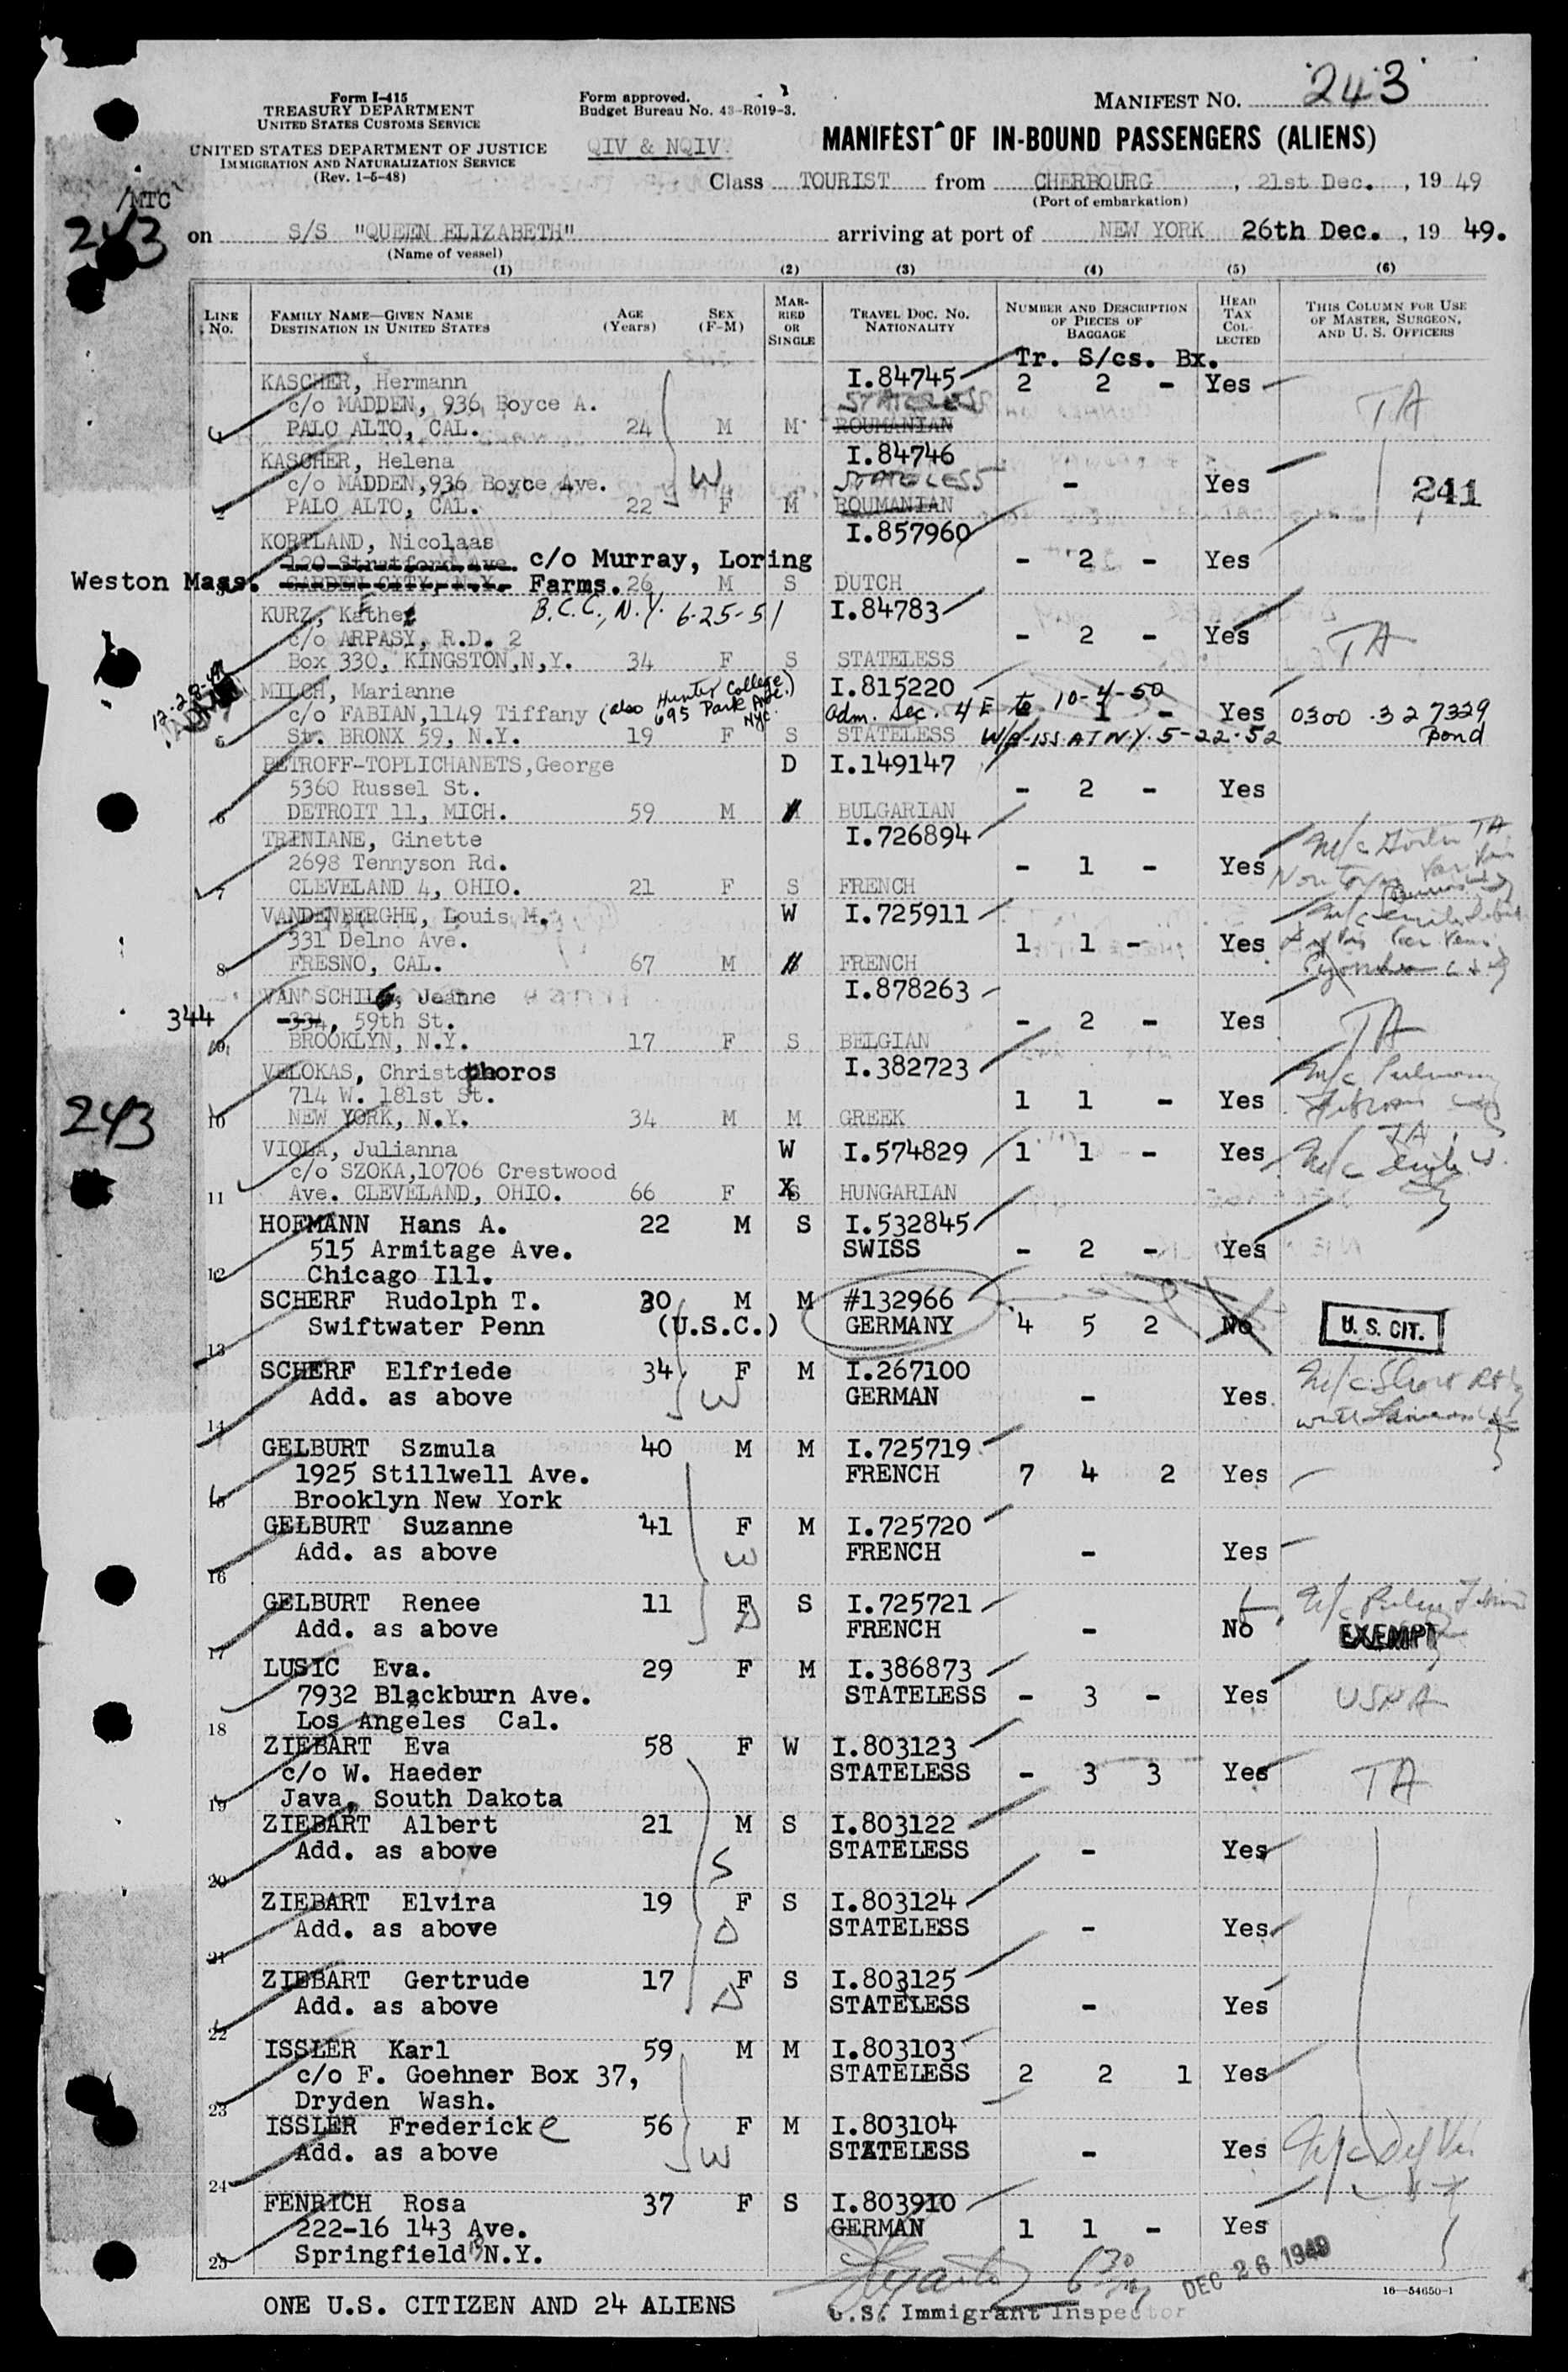 Form I-415
TREASURY DEPARTMENT
UNITED STATES CUSTOMS SERVICE
UNITED STATES DEPARTMENT OF JUSTICE
IMMIGRATION AND NATURALIZATION SERVICE
(Rev. 1-5-48)
Form approved.
Budget Bureau No. 43-R019-3.
QIV & NQIV
MANIFEST NO. 243
MANIFEST OF IN-BOUND PASSENGERS (ALIENS)
Class TOURIST from CHERBOURG, 21st Dec., 1949
(Port of embarkation)
/MTC
243
on S/S "QUEEN ELIZABETH" arriving at port of NEW YORK 26th Dec., 19 49.
(Name of vessel)
(1) (2) (3) (4) (5) (6)
LINE NO.
FAMILY NAME—GIVEN NAME
DESTINATION IN UNITED STATES
AGE (Years)
SEX (F-M)
MARRIED OR SINGLE
TRAVEL DOC. NO. NATIONALITY
NUMBER AND DESCRIPTION OF PIECES OF BAGGAGE
HEAD TAX COLLECTED
THIS COLUMN FOR USE OF MASTER, SURGEON, AND U. S. OFFICERS
Tr. S/cs. Bx.
KASCHER, Hermann I.84745 2 2 - Yes
c/o MADDEN, 936 Boyce A. STATELESS TA
1 PALO ALTO, CAL. 24 M M ROUMANIAN
KASCHER, Helena I.84746
c/o MADDEN,936 Boyce Ave. W STATELESS - Yes 241
2 PALO ALTO, CAL. 22 F M ROUMANIAN
KORTLAND, Nicolaas I.857960
120 Stratford Ave. c/o Murray, Loring - 2 - Yes
Weston Mass. GARDEN CITY, N.Y. Farms. 26 M S DUTCH
KURZ, Kathe B.C.C., N.Y. 6-25-51 I.84783
c/o ARPASY, R.D. 2 - 2 - Yes
Box 330, KINGSTON,N,Y. 34 F S STATELESS TA
MILCH, Marianne I.815220
c/o FABIAN,1149 Tiffany (also Hunter College 695 Park Ave. NYC.) Adm. Sec. 4 E to 10-4-50 - 1 - Yes 0300 . 327329
5 St. BRONX 59, N.Y. 19 F S STATELESS W/A-ISS AT N.Y. 5-22-52 Bond
PETROFF-TOPLICHANETS,George D I.149147
5360 Russel St. - 2 - Yes
6 DETROIT 11, MICH. 59 M BULGARIAN
TRINIANE, Ginette I.726894
2698 Tennyson Rd. - 1 - Yes
7 CLEVELAND 4, OHIO. 21 F S FRENCH
VANDENBERGHE, Louis M. W I.725911
331 Delno Ave. 1 1 - Yes
8 FRESNO, CAL. 67 M FRENCH
VAN SCHIL, Jeanne I.878263
344 334, 59th St. - 2 - Yes
BROOKLYN, N.Y. 17 F S BELGIAN TA
VELOKAS, Christophoros I.382723
714 W. 181st St. 1 1 - Yes
10 NEW YORK, N.Y. 34 M M GREEK
243
VIOLA, Julianna W I.574829 1 1 - Yes
c/o SZOKA,10706 Crestwood
11 Ave. CLEVELAND, OHIO. 66 F S HUNGARIAN
HOFMANN Hans A. 22 M S I.532845
515 Armitage Ave. SWISS - 2 - Yes
12 Chicago Ill.
SCHERF Rudolph T. 30 M M #132966
Swiftwater Penn (U.S.C.) GERMANY 4 5 2 No U. S. CIT.
13
SCHERF Elfriede 34 F M I.267100
Add. as above W GERMAN - Yes
14
GELBURT Szmula 40 M M I.725719
1925 Stillwell Ave. FRENCH 7 4 2 Yes
15 Brooklyn New York
GELBURT Suzanne 41 F M I.725720
Add. as above W FRENCH - Yes
16
GELBURT Renee 11 F S I.725721
Add. as above D FRENCH - No EXEMPT
17
LUSIC Eva. 29 F M I.386873
7932 Blackburn Ave. STATELESS - 3 - Yes USNA
18 Los Angeles Cal.
ZIEBART Eva 58 F W I.803123
c/o W. Haeder STATELESS - 3 3 Yes TA
19 Java, South Dakota
ZIEBART Albert 21 M S I.803122
Add. as above S STATELESS - Yes
20
ZIEBART Elvira 19 F S I.803124
Add. as above D STATELESS - Yes
21
ZIEBART Gertrude 17 F S I.803125
Add. as above D STATELESS - Yes
22
ISSLER Karl 59 M M I.803103
c/o F. Goehner Box 37, STATELESS 2 2 1 Yes
23 Dryden Wash.
ISSLER Fredericke 56 F M I.803104
Add. as above W STATELESS - Yes
24
FENRICH Rosa 37 F S I.803910
222-16 143 Ave. GERMAN 1 1 - Yes
25 Springfield N.Y.
DEC 26 1949
16—54650-1
ONE U.S. CITIZEN AND 24 ALIENS U.S. Immigrant Inspector